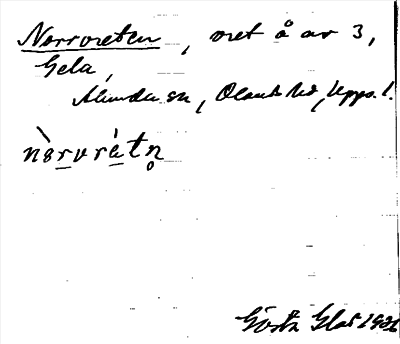 Norrvreten, vret å av 3,
Gela,
Alunda sn, Olands hd, Upps. l.
nòrvrétn̥
Gösta Glas 1931